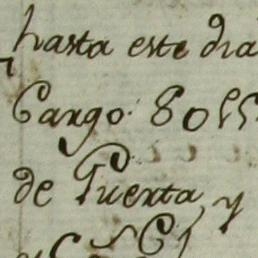 hasta este dia
Cargo. 8055
de Puerta, y